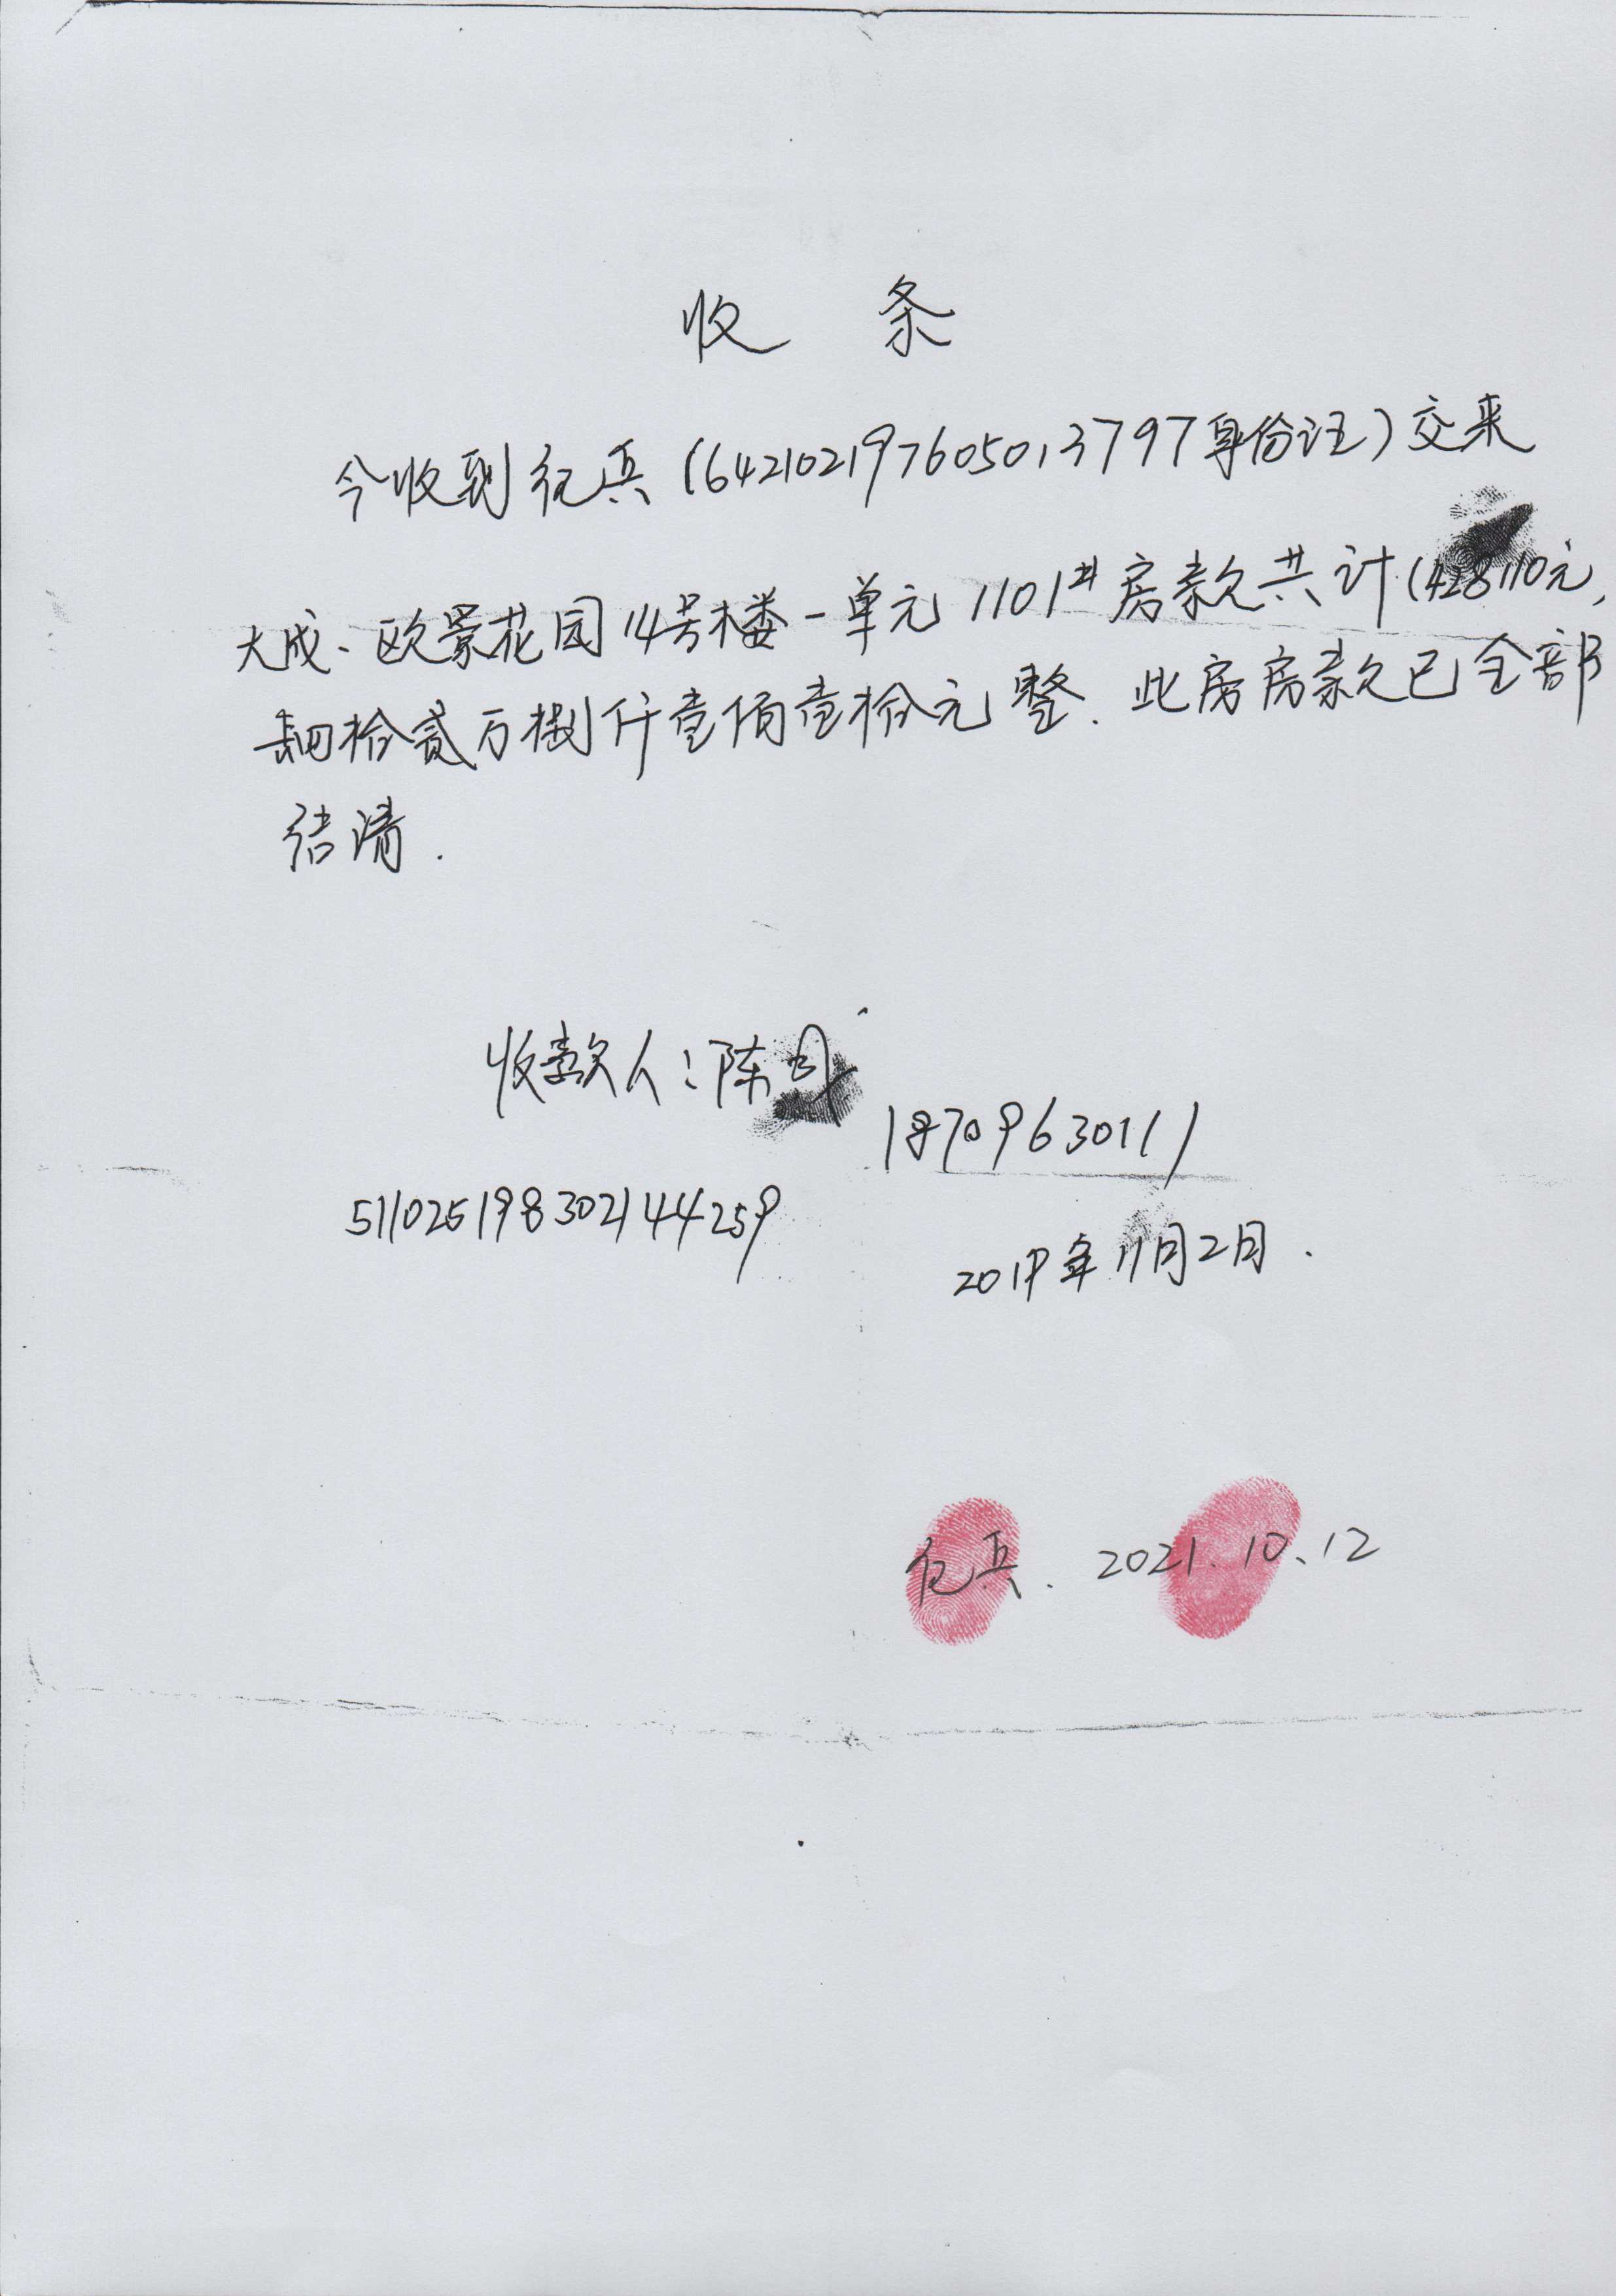 收 条
今收到 兵(642102197605013797身份证)交来
大成、欧景花园14号楼一单元1101#房款共计(428110元,
肆拾贰万捌仟壹佰壹拾元整.此房房款已全部
结清.
收款人:陈
18709630111
511025198302144259
2019年11月2日.
兵. 2021.10.12